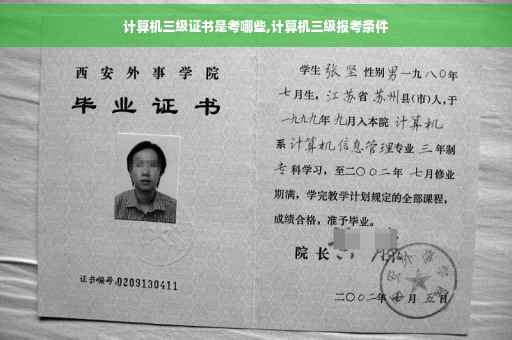 计算机三级证书是考哪些,计算机三级报考条件
西安外事学院
毕业证书
证书编号:0209130411
学生张坚性别男一九八〇年
七月生,江苏省苏州县(市)人,于
一九九九年九月入本院计算机
系计算机信息管理专业三年制
专科学习,至二〇〇二年七月修业
期满,学完教学计划规定的全部课程,
成绩合格,准予毕业。
院长
二〇〇二年七月五日